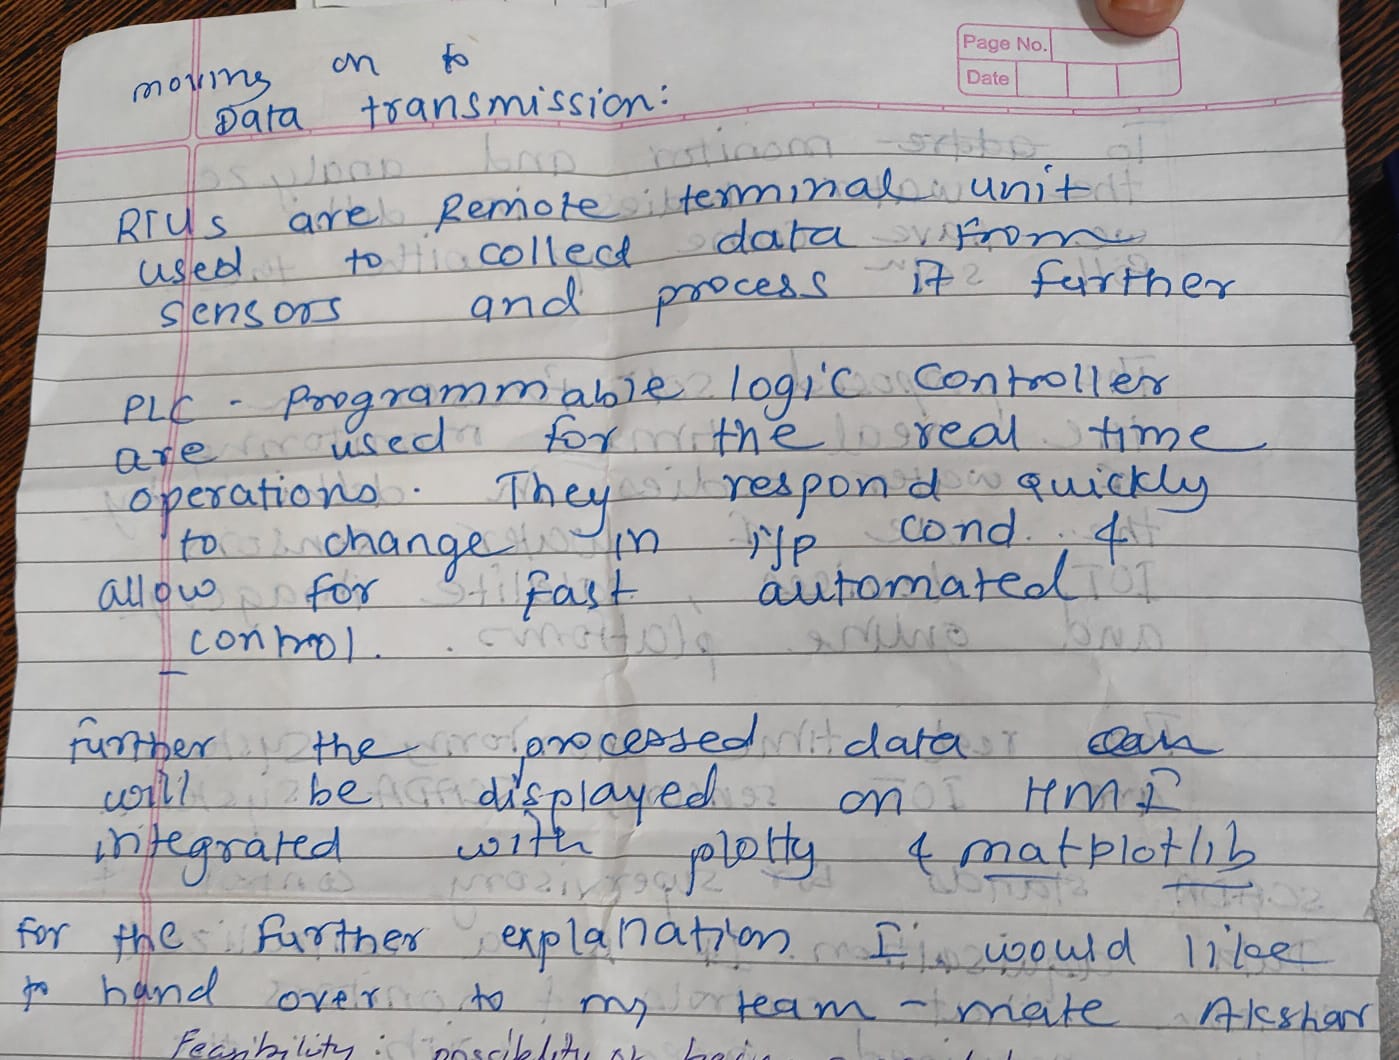 Page No.
Date
moving on to
Data transmission:
RTUs are Remote terminal unit
used to collect data from
sensors and process it further
PLC - Programmable logic controller
are used for the real time
operations. They respond quickly
to change in i/p cond. &
allow for fast automated
control.
further the processed data can
will be displayed on HMI
integrated with plotty & matplotlib
for the further explanation I would like
to hand over to my team-mate Akshar
Feasibility :